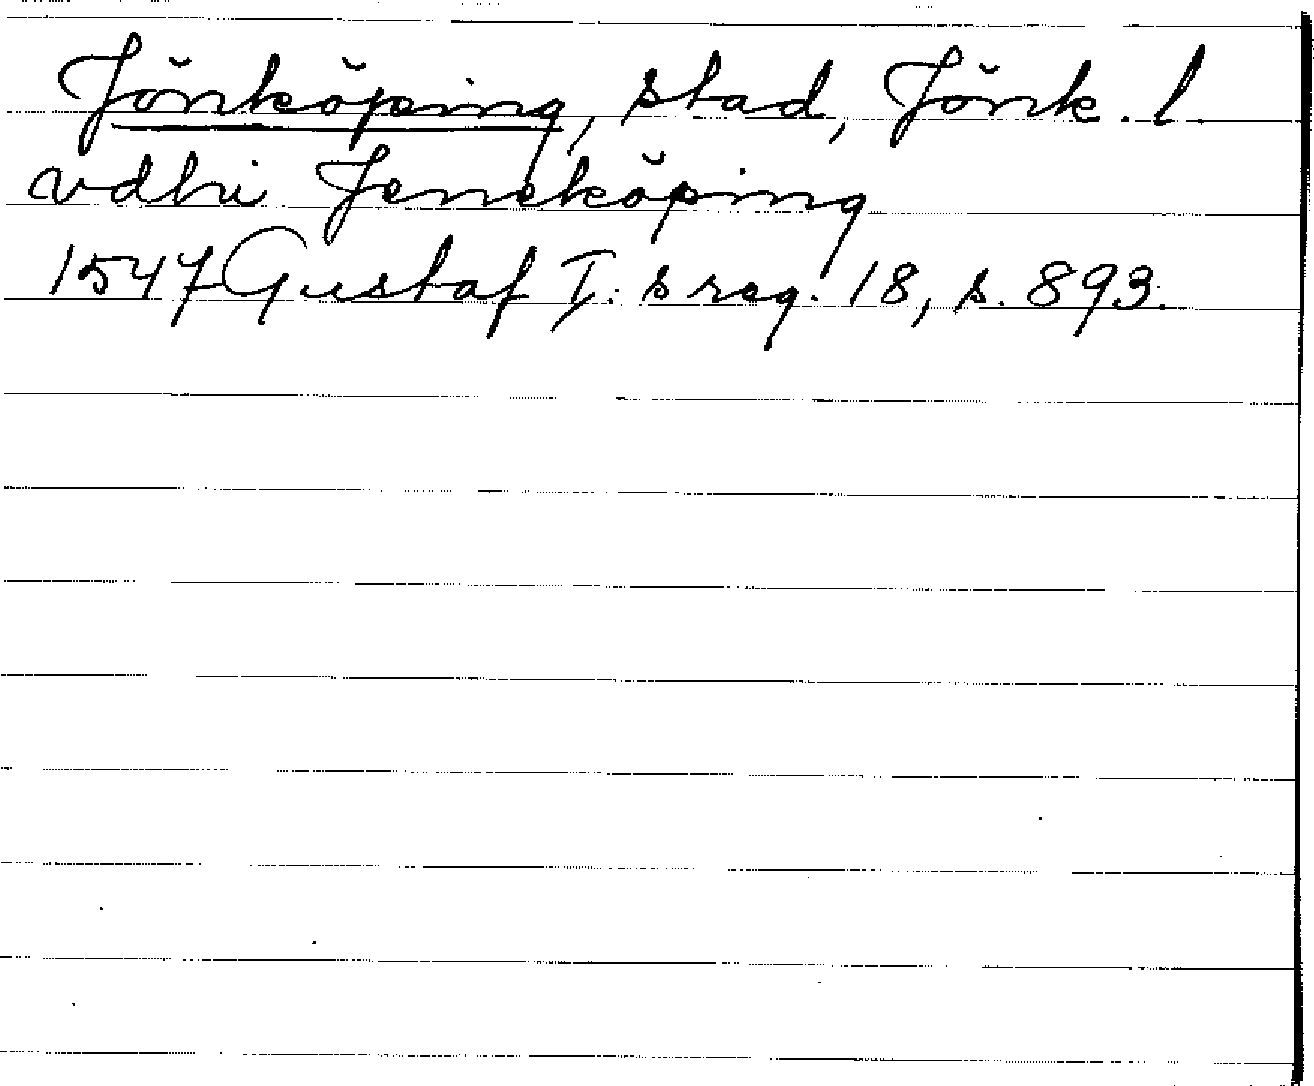 Jönköping, stad, Jönk. l.
vdhi Jeneköping
1547 Gustaf I:s reg. 18, s. 893.